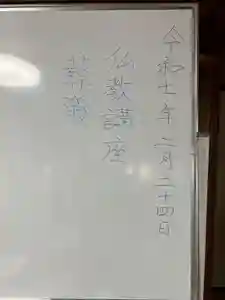 令和七年二月二十四日
仏教講座